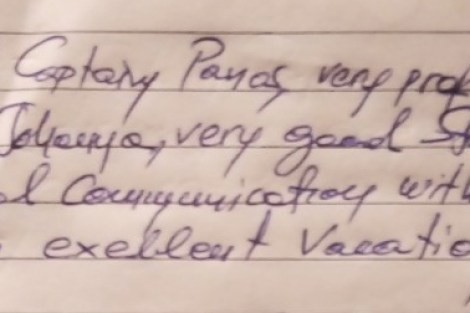 Captain Panos, very prof
very good
Communication with
exellent Vacatio